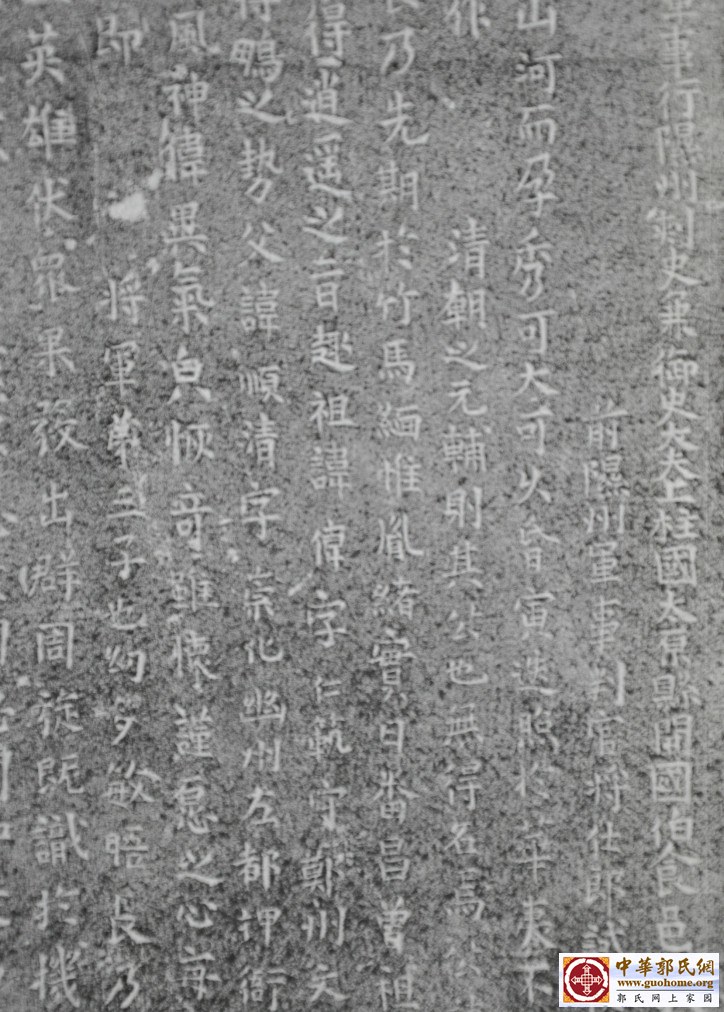 軍事行隰州刺史兼御史大夫上柱國太原縣開國伯食邑
前隰州軍事判官將仕郎試
山河而孕秀可大可久昏寅迭照於華夷不
作 清朝之元輔則其公也無得名焉
乃先期於竹馬緬惟胤緒實曰番昌曾祖
得逍遥之旨趣祖諱偉字仁範守鄭州
鴨之勢父諱順清字崇化幽州左都押衙
風神偉異氣皃恢奇雖懷謹愨之心每
即 將軍第三子也幼多敏晤長乃
英雄伏衆果發出群周旋既識於機
中華郭氏網
www.guohome.org
郭氏网上家园